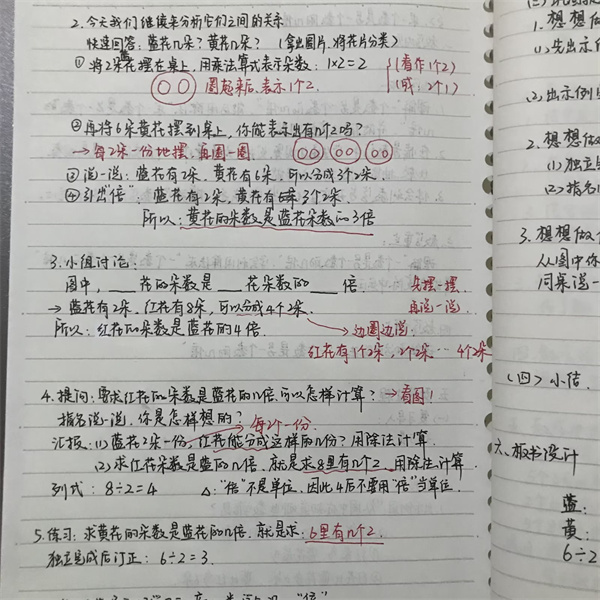 2. 今天我们继续来分析它们之间的关系
快速回答: 蓝花几朵? 黄花几朵? (拿出图片, 将花片分类)
① 将2朵蓝花摆在桌上, 用乘法算式表示朵数: 1×2=2 (看作1个2)
圈起来后, 表示1个2. (或: 2个1)
② 再将6朵黄花摆到桌上, 你能表示出有几个2吗?
→ 每2朵一份地摆, 再圈一圈.
③ 说一说: 蓝花有2朵, 黄花有6朵, 可以分成3个2朵.
④ 引出“倍”: 蓝花有2朵, 黄花有3个2朵.
所以: 黄花的朵数是蓝花朵数的3倍
3. 小组讨论:
图中, ___ 花的朵数是 ___ 花朵数的 ___ 倍. 先摆一摆
再说一说.
→ 蓝花有2朵, 红花有8朵, 可以分成4个2朵.
所以: 红花的朵数是蓝花的4倍. 边圈边说:
红花有1个2朵, 2个2朵 … 4个2朵
4. 提问: 要求红花的朵数是蓝花的几倍, 可以怎样计算? → 看图!
指名说一说, 你是怎样想的? 每2个一份.
汇报: (1) 蓝花2朵一份, 红花能分成这样的几份? 用除法计算.
(2) 求红花朵数是蓝的几倍, 就是求8里有几个2, 用除法计算.
列式: 8÷2=4 △: “倍”不是单位, 因此4后不要用“倍”当单位.
5. 练习: 求黄花的朵数是蓝花的几倍, 就是求: 6里有几个2.
独立完成后订正: 6÷2=3.
1. 想想做
(1) 先出示
(2) 出示例
2. 想想做
(1) 独立
(2) 指名
3. 想想做
从图中你
同桌说一
(四) 小结.
六、板书设计
蓝:
黄:
6÷2